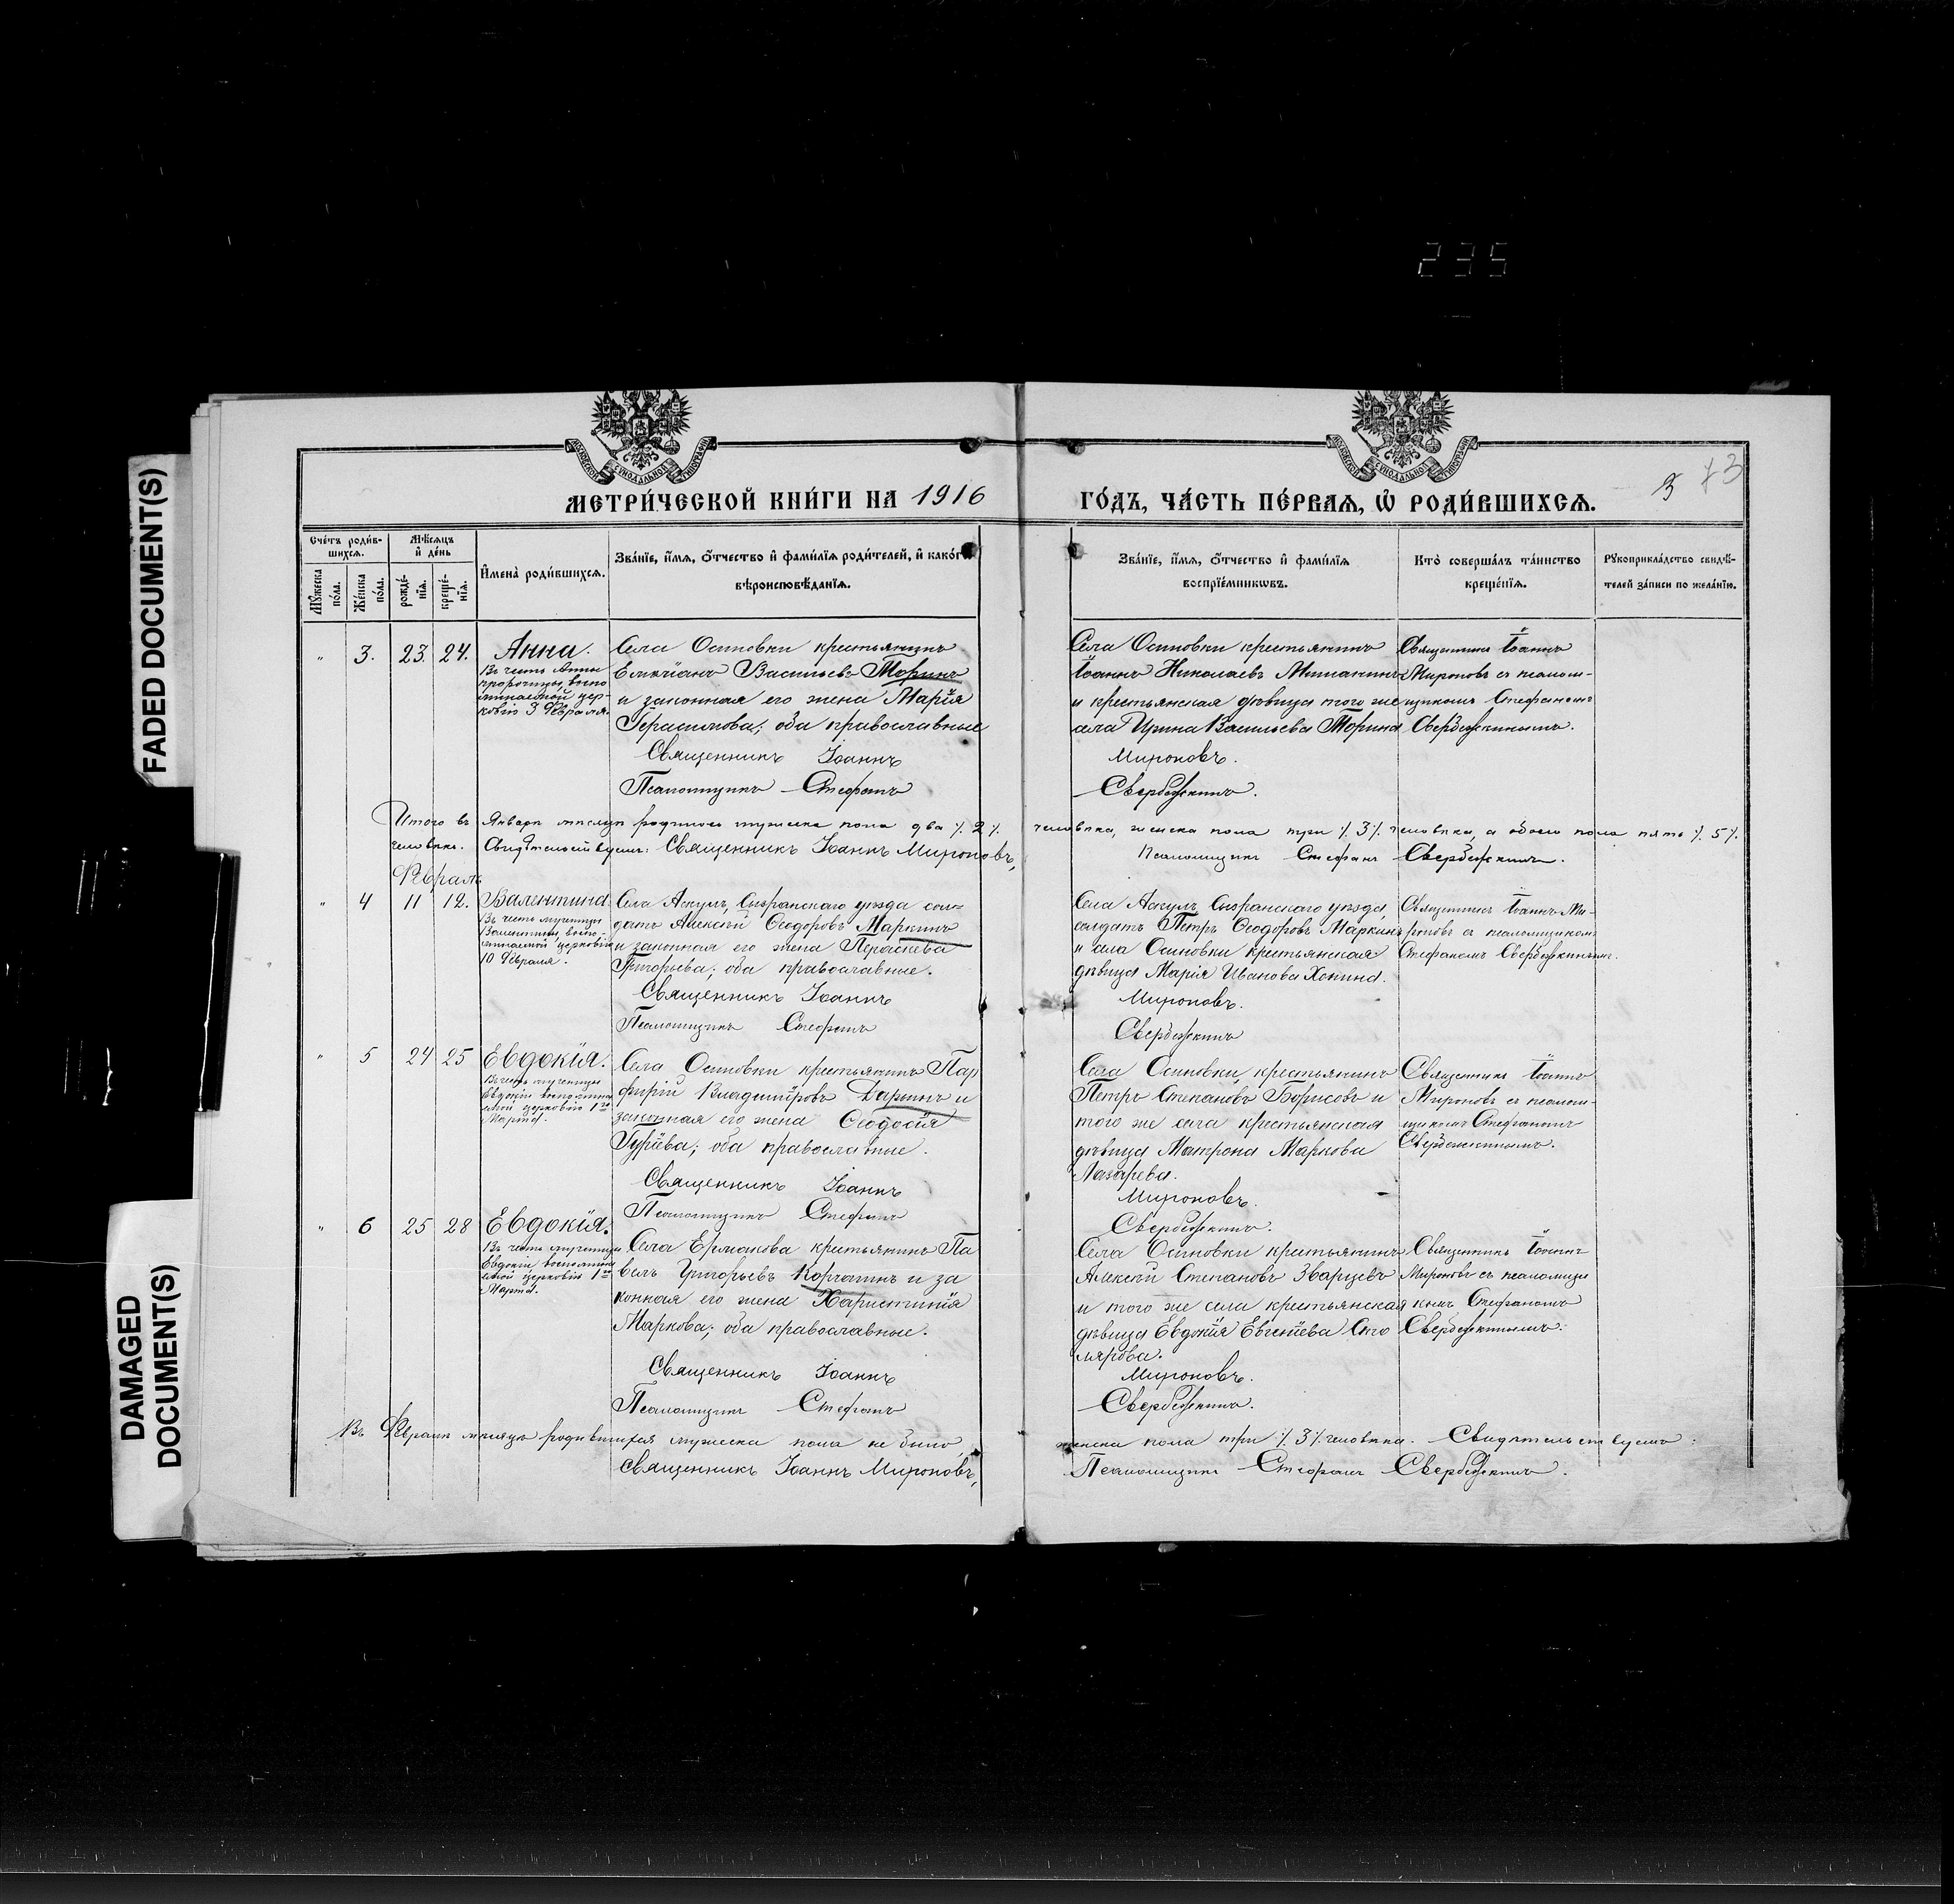 235
FADED DOCUMENT(S)
DAMAGED
DOCUMENT(S)
МЕТРИ́ЧЕСКОЙ КНИ́ГИ НА 1916
ГО́ДЪ, ЧА́СТЬ ПЕ́РВАЯ, Ѡ РОДИ́ВШИХСЯ.
3 73
Сче́тъ роди́в-
шихся.
Мѣ́сяцъ
и҆ де́нь
Мꙋ́жеска
по́ла.
Же́нска
по́ла.
рожде́-
нїѧ.
креще́-
нїѧ.
И҆мена̀ роди́вшихся.
Зва́нїе, и҆́мя, ѻ҆́тчество и҆ фами́лїя роди́телей, и҆ како́гѡ
вѣроисповѣ́данїѧ.
Зва́нїе, и҆́мя, ѻ҆́тчество и҆ фами́лїя
воспрїе́мникѡвъ.
Кто̀ соверша́лъ та́инство
креще́нїѧ.
Рꙋкоприкла́дство свидѣ́-
телей за́писи по жела́нїю.
" 3. 23. 24. Анна.
Въ честь Анны
пророчицы, воспо
минаемой цер-
ковію 3 Февраля.
Села Осиновки крестьянинъ
Емиліанъ Васильевъ Торинъ
и законная его жена Марія
Герасимова; оба православные
Священникъ Іоаннъ
Псаломщикъ Стефанъ
Села Осиновки крестьянинъ
Іоаннъ Николаевъ Мишанинъ
и крестьянская дѣвица того же
села Ирина Васильева Торина
Мироновъ.
Свербежкинъ.
Священникъ Іоаннъ
Мироновъ съ псалом-
щикомъ Стефаномъ
Свербежкинымъ.
Итого въ Январѣ мѣсяцѣ родилось мужеска пола два ./. 2 ./. человѣка, женска пола три ./. 3 ./. человѣка, а обоего пола пять ./. 5 ./.
человѣкъ. Свидѣтельствуемъ: Священникъ Іоаннъ Мироновъ, Псаломщикъ Стефанъ Свербежкинъ.
Февраль
" 4 11 12. Валентина
Въ честь мученицы
Валентины, воспо-
минаемой церковію
10 Февраля.
Села Аскулъ, Сызранскаго уѣзда сол-
датъ Алексѣй Ѳеодоровъ Маркинъ
и законная его жена Параскева
Григорьева; оба православные.
Священникъ Іоаннъ
Псаломщикъ Стефанъ
Села Аскулъ Сызранскаго уѣзда,
солдатъ Петръ Ѳеодоровъ Маркинъ
и села Осиновки крестьянская
дѣвица Марія Иванова Хонина.
Мироновъ.
Свербежкинъ
Священникъ Іоаннъ Ми-
роновъ съ псаломщикомъ
Стефаномъ Свербежкинымъ.
" 5 24 25 Евдокія.
Въ честь мученицы
Евдокіи воспомина
емой церковію 1го
Марта.
Села Осиновки крестьянинъ Пар
фирій Владиміровъ Ларинъ и
законная его жена Ѳеодосія
Гурьева; оба православные.
Священникъ Іоаннъ
Псаломщикъ Стефанъ
Села Осиновки, крестьянинъ
Петръ Степановъ Борисовъ и
того же села крестьянская
дѣвица Матрона Маркова
Лазарева.
Мироновъ.
Свербежкинъ.
Священникъ Іоаннъ
Мироновъ съ псалом-
щикомъ Стефаномъ
Свербежкинымъ.
" 6 25 28 Евдокія.
Въ честь мученицы
Евдокіи, воспомина
емой церковію 1го
Марта.
Села Ермакова крестьянинъ Па
велъ Григорьевъ Корчагинъ и за
конная его жена Христинія
Маркова; оба православные.
Священникъ Іоаннъ
Псаломщикъ Стефанъ
Села Осиновки крестьянинъ
Алексѣй Степановъ Зварцевъ
и того же села крестьянская
дѣвица Евдокія Евгеніева Сто
лярова.
Мироновъ.
Свербежкинъ.
Священникъ Іоаннъ
Мироновъ съ псаломщи
комъ Стефаномъ
Свербежкинымъ.
Въ Февралѣ мѣсяцѣ родившихся мужеска пола не было, женска пола три ./. 3 ./. человѣка. Свидѣтельствуемъ:
Священникъ Іоаннъ Мироновъ, Псаломщикъ Стефанъ Свербежкинъ.